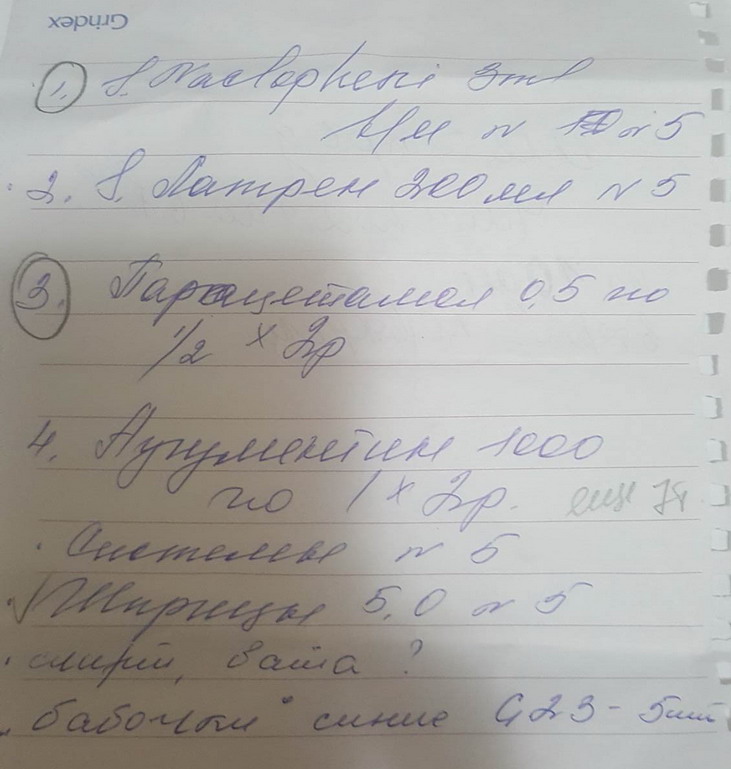 Grindex
1. S. Naclopheni 3ml
в/м N 5
2. S. Латрен 200 мл N 5
3. Парацетамол 0,5 по
1/2 x 2р
4. Аугументин 1000
по 1 x 2р. еще 7
Системы N 5
Шприцы 5,0 N 5
спирт, вата ?
"бабочки" синие G23 - 5шт